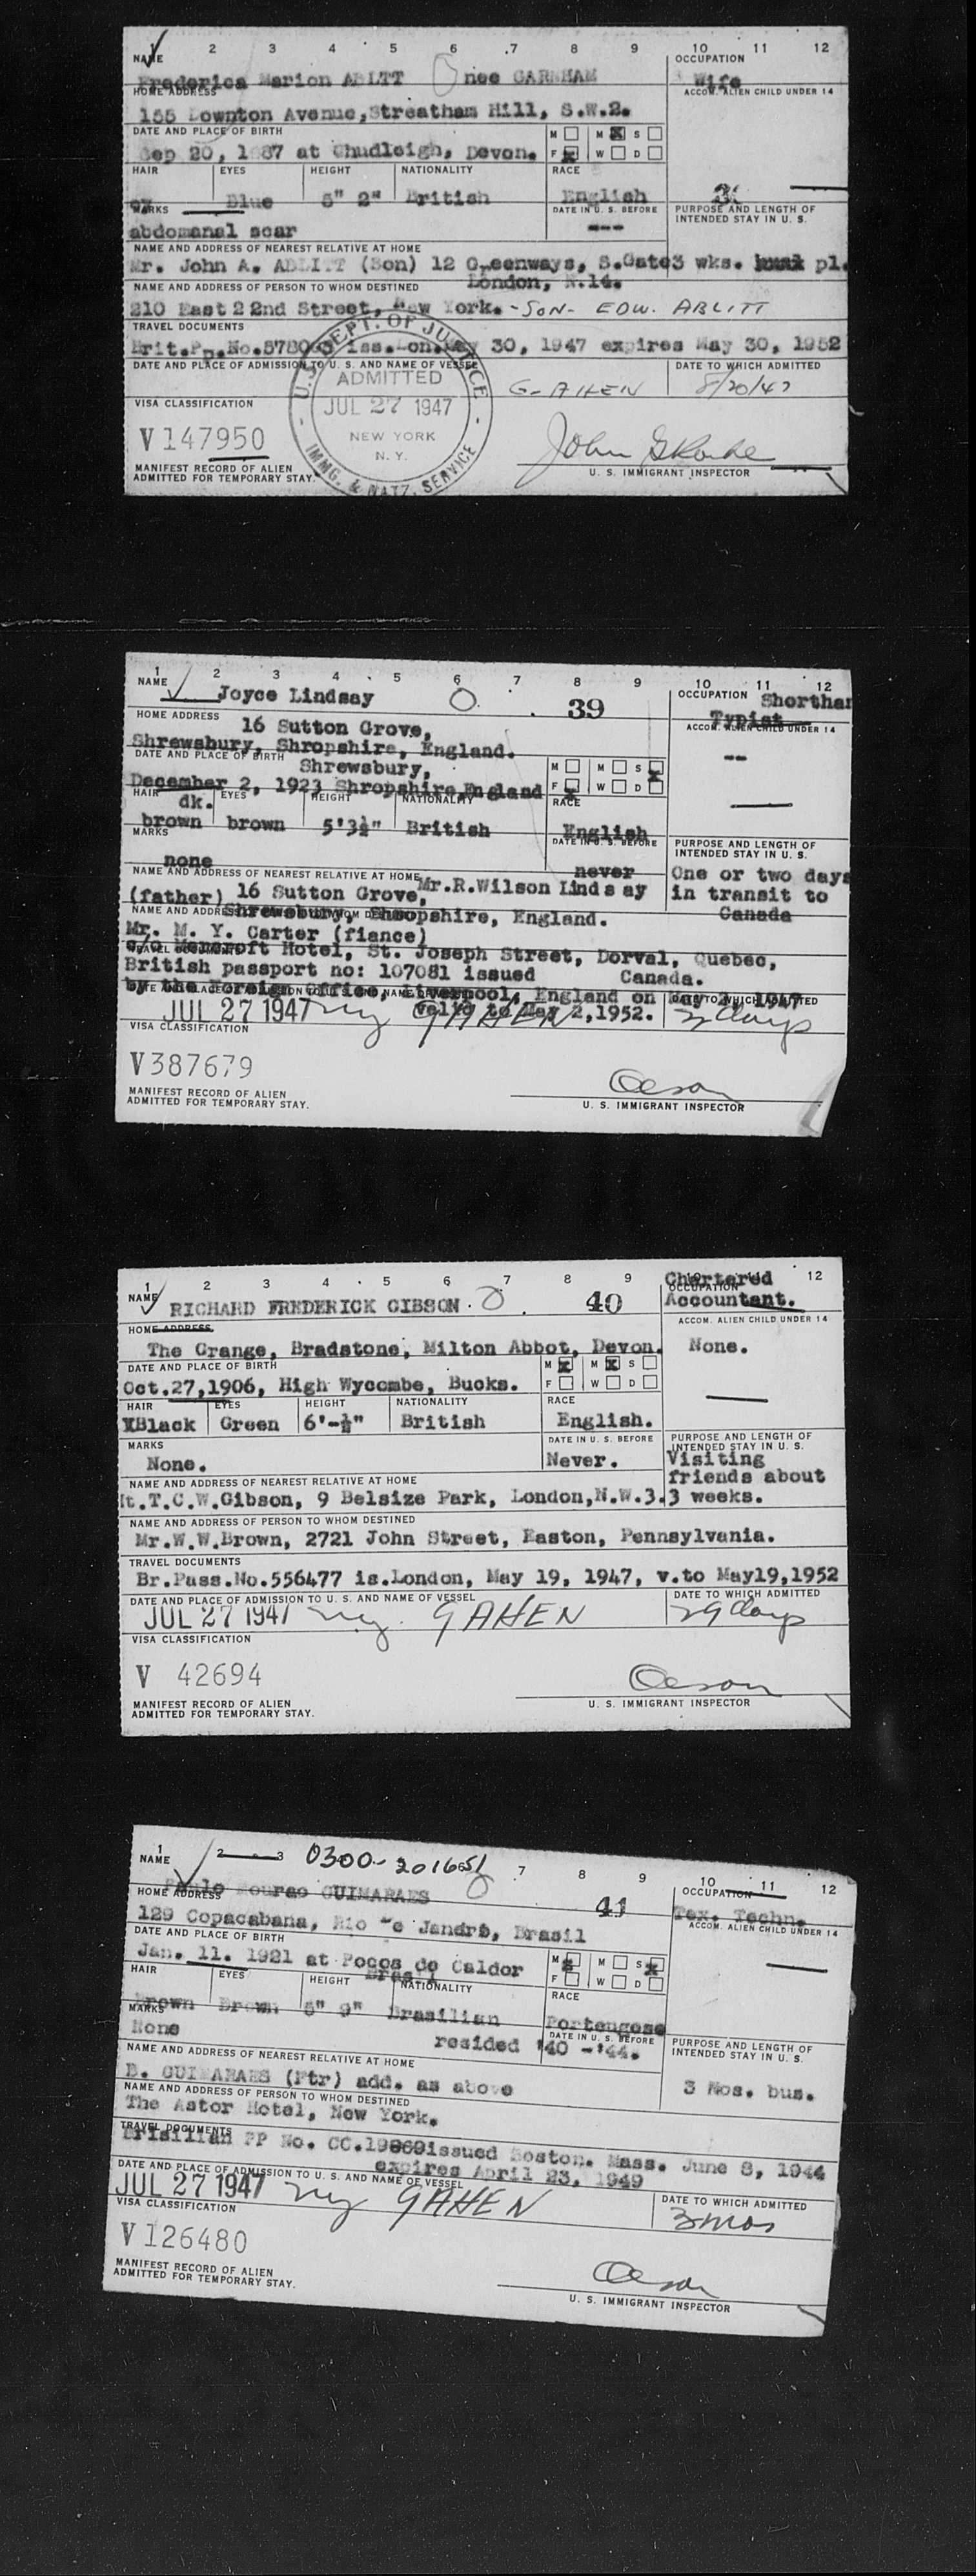 1 2 3 4 5 6 7 8 9 10 11 12
NAME OCCUPATION
Frederica Marion ABLITT nee CARNHAM Wife
HOME ADDRESS ACCOM. ALIEN CHILD UNDER 14
155 Downton Avenue, Streatham Hill, S.W.2.
DATE AND PLACE OF BIRTH M M X S
Sep 20, 1887 at Chudleigh, Devon. F X W D
HAIR EYES HEIGHT NATIONALITY RACE
Blue 5" 2" British English
MARKS DATE IN U. S. BEFORE PURPOSE AND LENGTH OF INTENDED STAY IN U. S.
abdomanal scar ---
NAME AND ADDRESS OF NEAREST RELATIVE AT HOME
Mr. John A. ABLITT (Son) 12 Greenways, S.Gate 3 wks. pl.
NAME AND ADDRESS OF PERSON TO WHOM DESTINED London, N.14.
210 East 22nd Street, New York. -SON- EDW. ABLITT
TRAVEL DOCUMENTS
Brit.Pp.No. iss.Lon.May 30, 1947 expires May 30, 1952
DATE AND PLACE OF ADMISSION TO U. S. AND NAME OF VESSEL DATE TO WHICH ADMITTED
U.S. DEPT. OF JUSTICE
ADMITTED
JUL 27 1947
NEW YORK
N. Y.
IMMG. & NATZ. SERVICE
G-AHEN 8/20/47
VISA CLASSIFICATION
V 147950
MANIFEST RECORD OF ALIEN
ADMITTED FOR TEMPORARY STAY. U. S. IMMIGRANT INSPECTOR
1 2 3 4 5 6 7 8 9 10 11 12
NAME Joyce Lindsay 39 OCCUPATION Shorthan
HOME ADDRESS Typist
16 Sutton Grove, ACCOM. ALIEN CHILD UNDER 14
Shrewsbury, Shropshire, England. --
DATE AND PLACE OF BIRTH Shrewsbury, M M S X
December 2, 1923 Shropshire, England F X W D
HAIR EYES HEIGHT NATIONALITY RACE
dk.
brown brown 5'3½" British English
MARKS DATE IN U. S. BEFORE PURPOSE AND LENGTH OF INTENDED STAY IN U. S.
none never
NAME AND ADDRESS OF NEAREST RELATIVE AT HOME Mr.R.Wilson Lindsay One or two days
(father) 16 Sutton Grove, in transit to
Shrewsbury, Shropshire, England. Canada
Mr. M. Y. Carter (fiance)
c/o Hotel, St. Joseph Street, Dorval, Quebec,
British passport no: 107081 issued Canada.
by the Foreign Office, Liverpool, England on May 2, 1947
JUL 27 1947 ny GAHEN valid to May 2,1952. 2 days
VISA CLASSIFICATION
V387679
Oeson
MANIFEST RECORD OF ALIEN
ADMITTED FOR TEMPORARY STAY. U. S. IMMIGRANT INSPECTOR
1 2 3 4 5 6 7 8 9 12
Chartered
NAME RICHARD FREDERICK GIBSON. 40 OCCUPATION Accountant.
HOME ADDRESS ACCOM. ALIEN CHILD UNDER 14
The Grange, Bradstone, Milton Abbot, Devon. None.
DATE AND PLACE OF BIRTH M X M X S
Oct.27,1906, High Wycombe, Bucks. F W D
HAIR EYES HEIGHT NATIONALITY RACE
XBlack Green 6'-½" British English.
MARKS DATE IN U. S. BEFORE PURPOSE AND LENGTH OF INTENDED STAY IN U. S.
None. Never. Visiting
NAME AND ADDRESS OF NEAREST RELATIVE AT HOME friends about
t.T.C.W.Gibson, 9 Belsize Park, London,N.W.3. 3 weeks.
NAME AND ADDRESS OF PERSON TO WHOM DESTINED
Mr.W.W.Brown, 2721 John Street, Easton, Pennsylvania.
TRAVEL DOCUMENTS
Br.Pass.No.556477 is.London, May 19, 1947, v.to May19,1952
DATE AND PLACE OF ADMISSION TO U. S. AND NAME OF VESSEL DATE TO WHICH ADMITTED
JUL 27 1947 ny. GAHEN 29 days
VISA CLASSIFICATION
V 42694
Oeson
MANIFEST RECORD OF ALIEN
ADMITTED FOR TEMPORARY STAY. U. S. IMMIGRANT INSPECTOR
1 2 3 0300-201651 7 8 9 10 11 12
NAME Paulo Mourao GUIMARAES 41 OCCUPATION
HOME ADDRESS Tex. Techn.
129 Copacabana, Rio De Janero, Brasil ACCOM. ALIEN CHILD UNDER 14
DATE AND PLACE OF BIRTH M X M S X
Jan. 11. 1921 at Pocos de Caldor F W D
Brasil
HAIR EYES HEIGHT NATIONALITY RACE
Brown Brown 5" 9" Brasilian Porteugese
MARKS DATE IN U. S. BEFORE PURPOSE AND LENGTH OF INTENDED STAY IN U. S.
None resided '40 -'44.
NAME AND ADDRESS OF NEAREST RELATIVE AT HOME
B. GUIMARAES (Ftr) add. as above 3 Mos. bus.
NAME AND ADDRESS OF PERSON TO WHOM DESTINED
The Astor Hotel, New York.
TRAVEL DOCUMENTS
Brisilian PP No. CC.19869issued Boston. Mass. June 8, 1944
expires April 23, 1949
DATE AND PLACE OF ADMISSION TO U. S. AND NAME OF VESSEL DATE TO WHICH ADMITTED
JUL 27 1947 ny GAHEN 3 mos
VISA CLASSIFICATION
V126480
Oeson
MANIFEST RECORD OF ALIEN
ADMITTED FOR TEMPORARY STAY. U. S. IMMIGRANT INSPECTOR